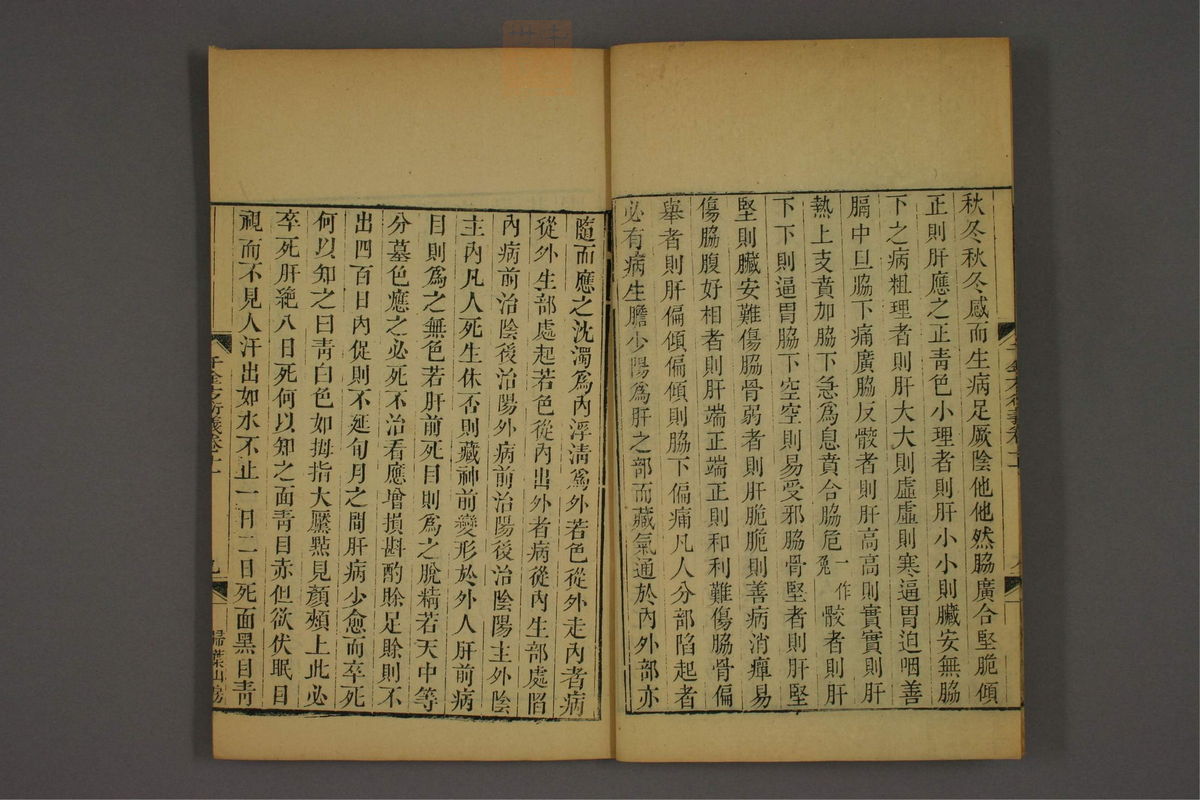 秋冬秋冬感而生病足厥陰他他然脇廣合堅脆傾
正則肝應之正青色小理者則肝小小則臟安無脇
下之病粗理者則肝大大則虛虛則寒逼胃迫咽善
膈中且脇下痛廣脇反骹者則肝高高則實實則肝
熱上支賁加脇下急爲息賁合脇危一作兔骹者則肝
下下則逼胃脇下空空則易受邪脇骨堅者則肝堅
堅則臟安難傷脇骨弱者則肝脆脆則善病消癉易
傷脇腹好相者則肝端正端正則和利難傷脇骨偏
舉者則肝偏傾偏傾則脇下偏痛凡人分部陷起者
必有病生膽少陽爲肝之部而藏氣通於內外部亦
隨而應之沈濁爲內浮清爲外若色從外走內者病
從外生部處起若色從內出外者病從內生部處陷
內病前治陰後治陽外病前治陽後治陰陽主外陰
主內凡人死生休否則藏神前變形於外人肝前病
目則爲之無色若肝前死目則爲之脫精若天中等
分墓色應之必死不治看應增損斟酌賖足賖則不
出四百日內促則不延旬月之間肝病少愈而卒死
何以知之曰青白色如拇指大黶點見顏頰上此必
卒死肝絕八日死何以知之面青目赤但欲伏眠目
視而不見人汗出如水不止一日二日死面黑目青
千金方衍義卷十一
九
掃葉山房